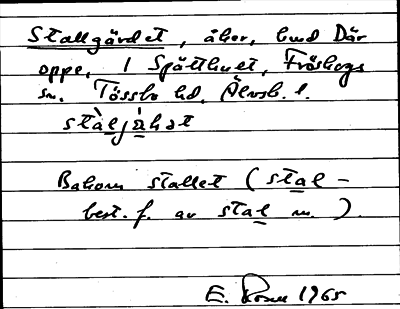 Stallgärdet, åker, hmd Där
oppe, 1 Spätthuet, Fröskogs
sn. Tössbo hd, Älvsb. l.
stàljáḷat
Bakom stallet (stal -
best. f. av stal n.).
E. 1965